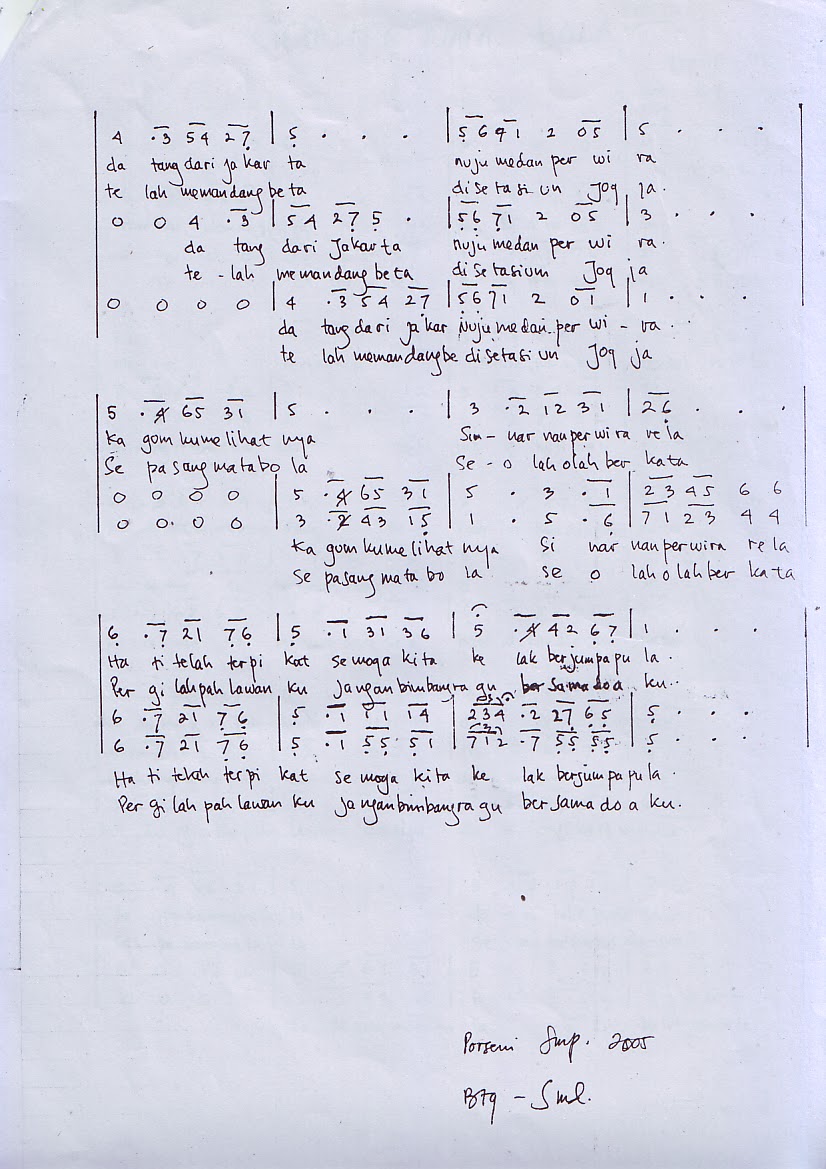 4 .3 54 27 | 5 . . . | 56 71 2 05 | 5 . . .
da tang dari ja kar ta nuju medan per wi ra
te lah memandang be ta di setasi un Jog ja.
0 0 4 .3 | 54 27 5 . | 56 71 2 05 | 3 . . .
da tang dari Jakarta nuju medan per wi ra.
te - lah memandang beta di setasium Jog ja
0 0 0 0 | 4 .3 54 27 | 56 71 2 01 | 1 . . .
da tang dari ja kar Nuju medan per wi - ra .
te lah memandang be di setasi un Jog ja
5 .4 65 31 | 5 . . . | 3 .2 12 31 | 26 . . .
Ka gum ku me lihat nya Sin - nar nan per wira re la
Se pa sang mata bo la Se - o lah olah ber kata
0 0 0 0 | 5 .4 65 31 | 5 . 3 .1 | 23 45 6 6
0 0. 0 0 | 3 .2 43 15 | 1 . 5 .6 | 71 23 4 4
Ka gum ku me lihat nya Si nar nan per wira re la
Se pasang mata bo la se o lah o lah ber ka ta
6 .7 21 76 | 5 .1 31 36 | 5 .4 42 67 | 1 . . .
Ha ti telah ter pi kat se moga kita ke lak berjumpa pu la .
Per gi lah pah lawan ku jangan bimbang ra gu bersama doa ku..
6 .7 21 76 | 5 .1 11 14 | 234 .2 27 65 | 5 . . .
6 .7 21 76 | 5 .1 55 51 | 712 .7 55 55 | 5 . . .
Ha ti telah ter pi kat se moga kita ke lak berjum pa pu la .
Per gi lah pah lawan ku ja ngan bimbang ra gu ber sama do a ku.
Porseni Smp. 2005
Btg - Sml.